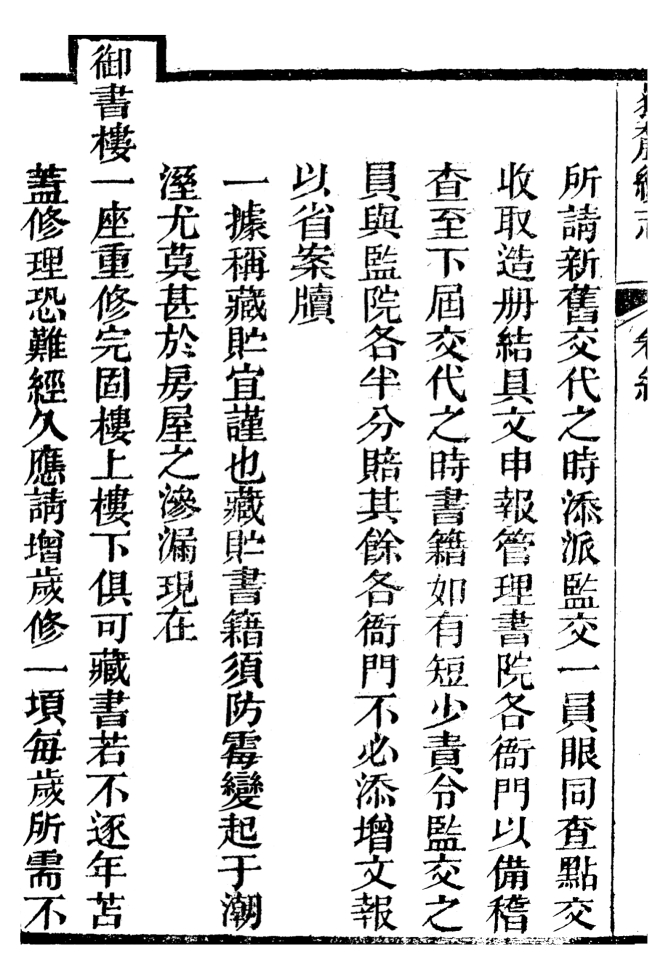 所請新舊交代之時添派監交一員眼同查點交
收取造册結具文申報管理書院各衙門以備稽
查至下屆交代之時書籍如有短少責令監交之
員與監院各半分賠其餘各衙門不必添增文報
以省案牘
一據稱藏貯宜謹也藏貯書籍須防霉變起于潮
溼尤莫甚於房屋之滲漏現在
御書樓一座重修完固樓上樓下俱可藏書若不逐年苫
蓋修理恐難經久應請增歲修一項每歲所需不